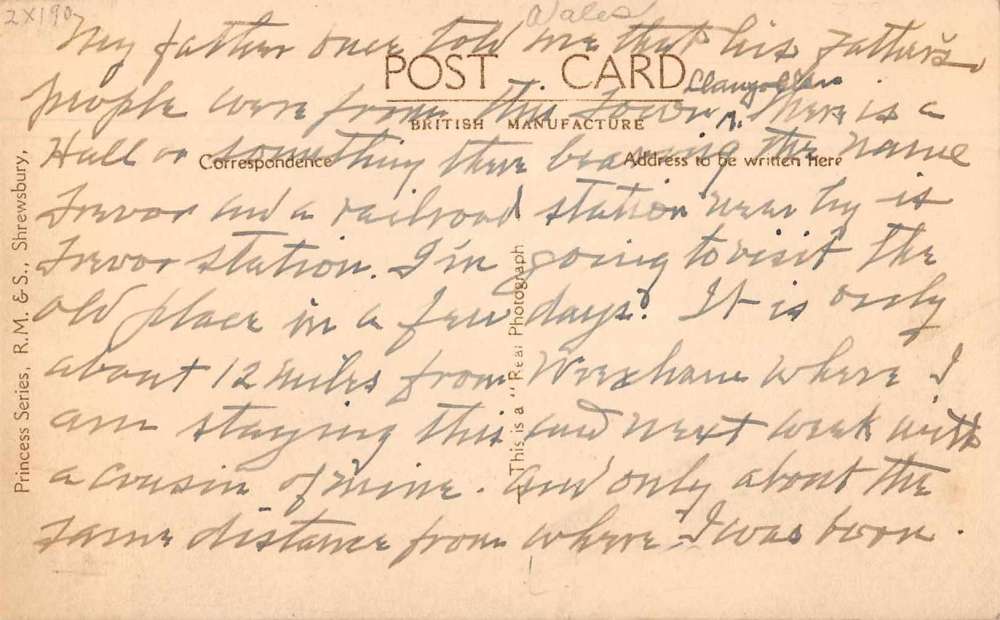 2X190
Wales
My father once told me that his father's
POST CARD
people were from this town Llangollen There is a
BRITISH MANUFACTURE
Hall or something there bearing the name
Correspondence
Address to be written here
Trevor and a railroad station near by is
Trevor station. I'm going to visit the
old place in a few days. It is only
about 12 miles from Wrexham where I
am staying this and next week with
a cousin of mine. and only about the
same distance from where I was born.
Princess Series, R.M. & S., Shrewsbury,
This is a "Real Photograph